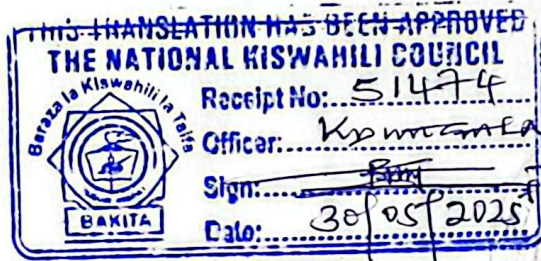 THIS TRANSLATION HAS BEEN APPROVED
THE NATIONAL KISWAHILI COUNCIL
Baraza la Kiswahili la Taifa
BAKITA
Receipt No: 51474
Officer:
Sign:
Date: 30/05/2025